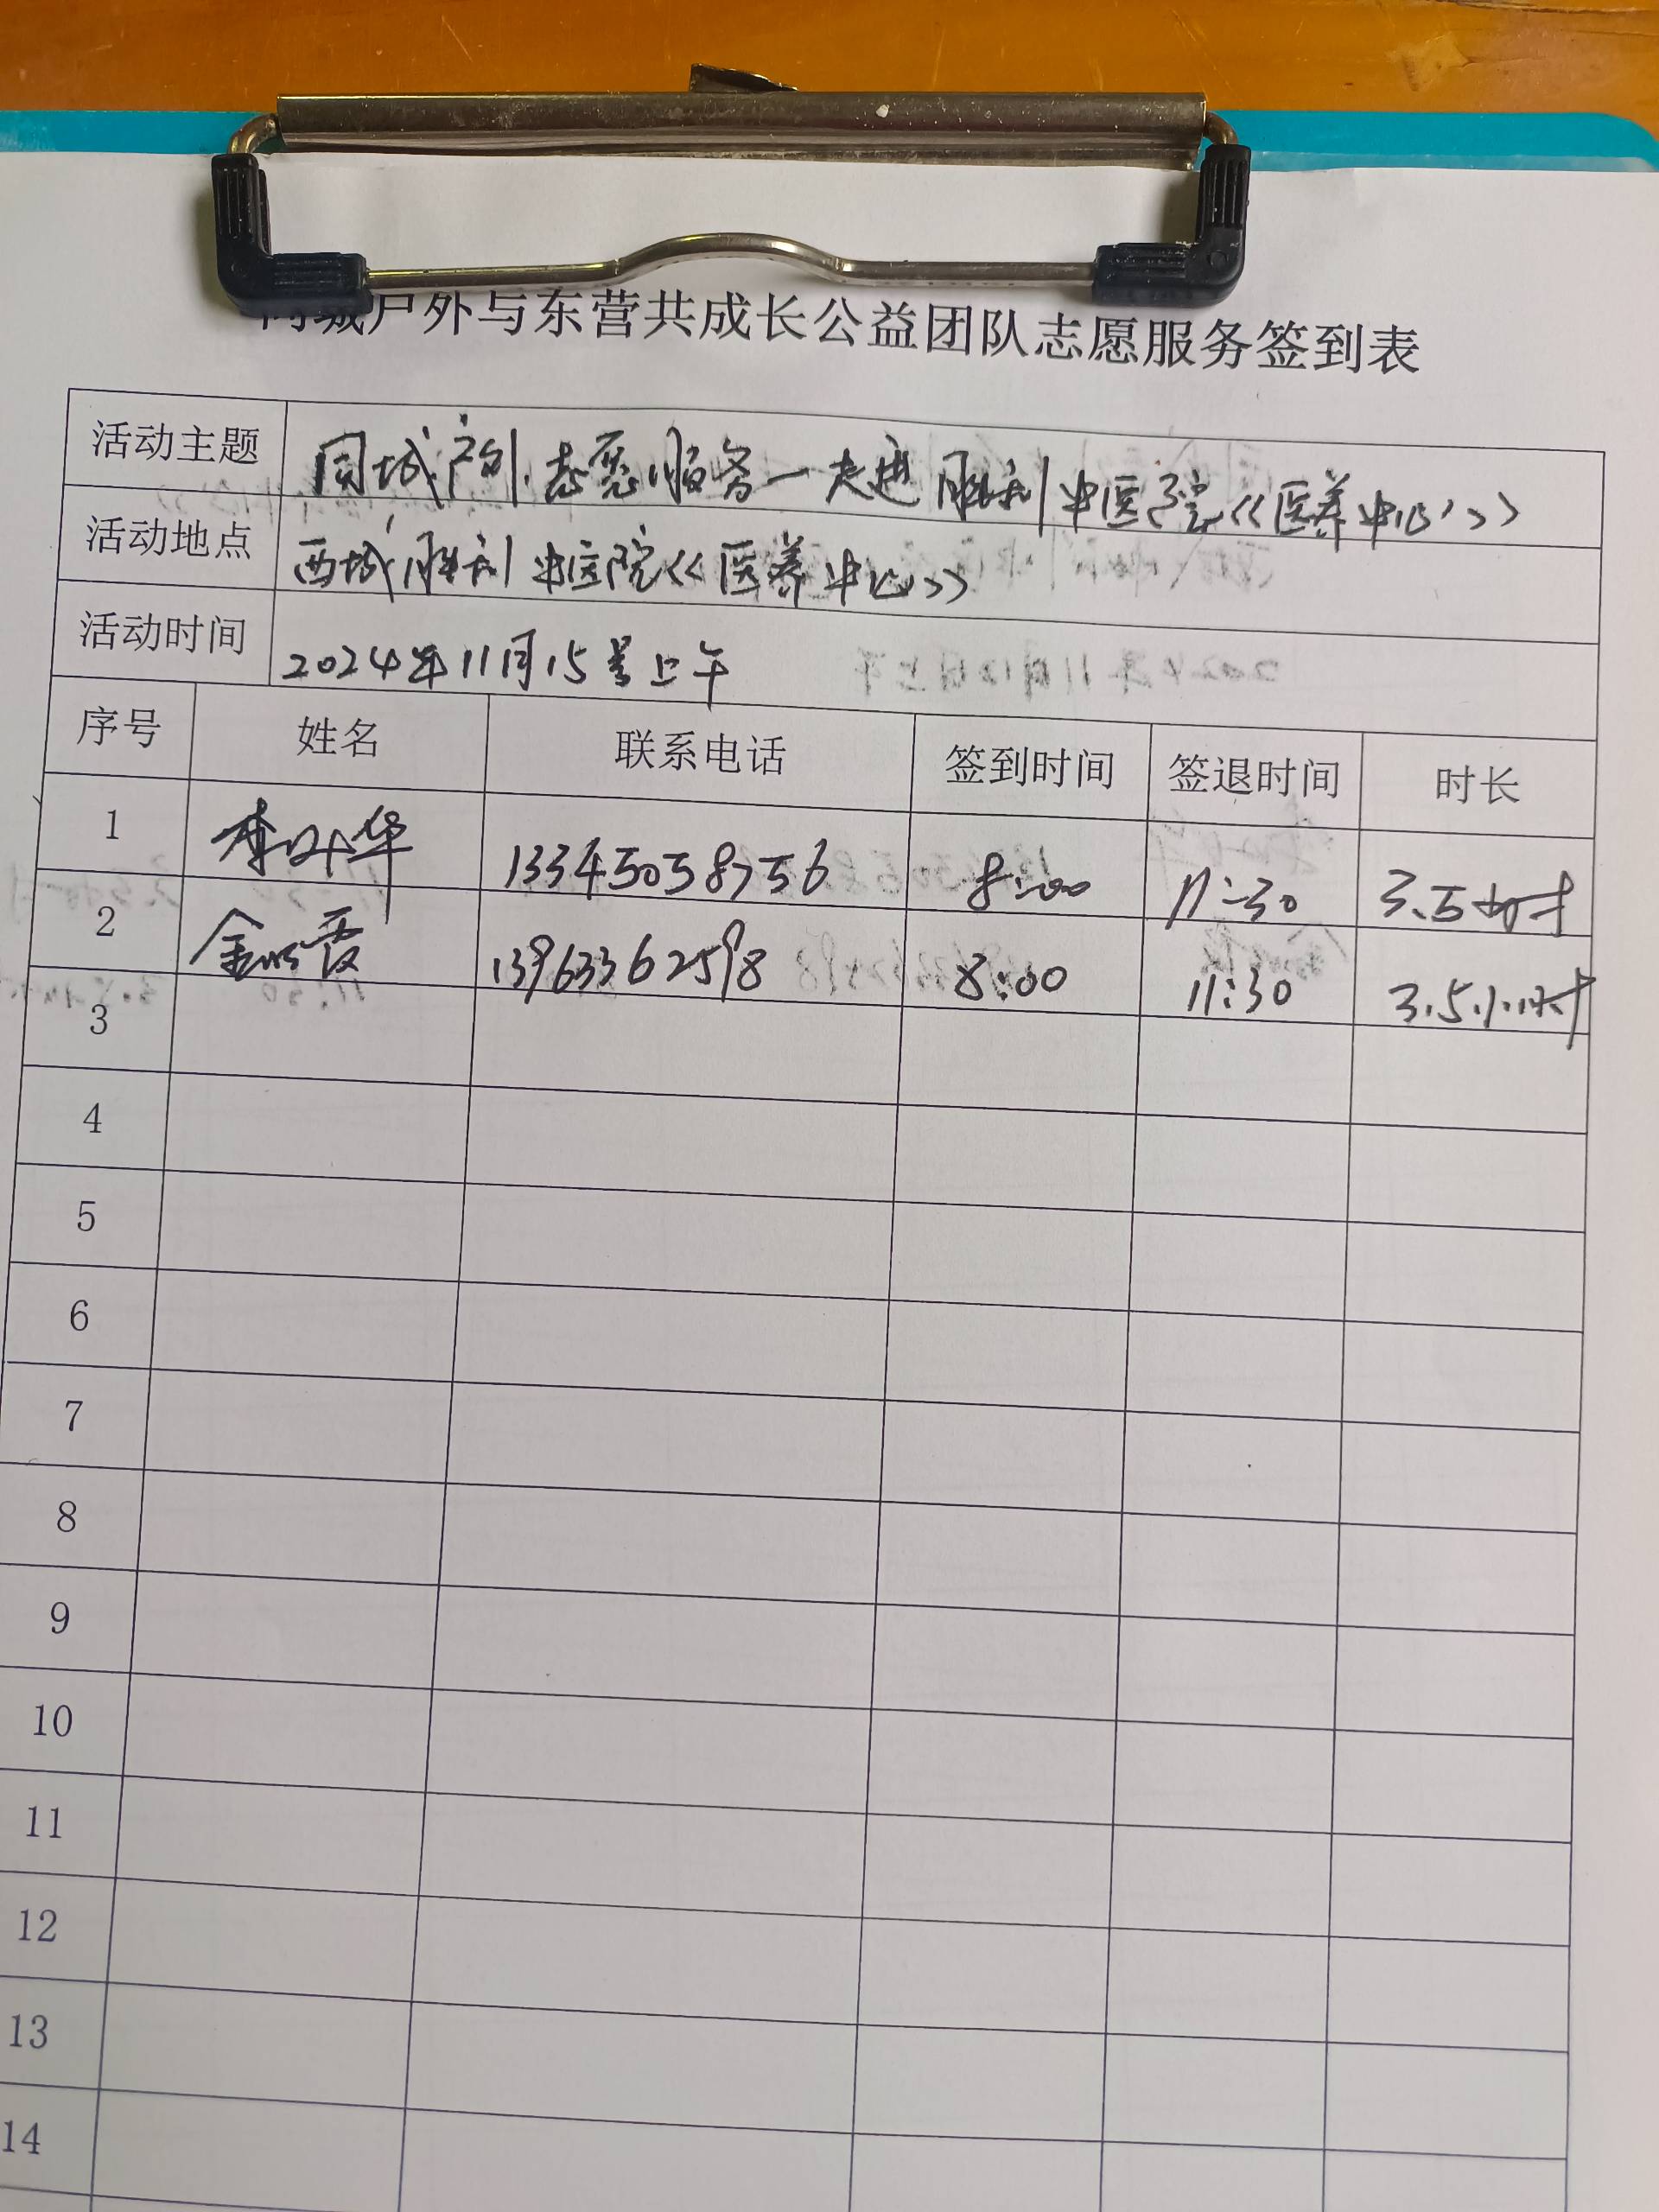 同城户外与东营共成长公益团队志愿服务签到表
活动主题 同城户外志愿服务一走进胜利中医院《医养中心》
活动地点 西城胜利中医院《医养中心》
活动时间 2024年11月15号上午
序号 姓名 联系电话 签到时间 签退时间 时长
1 李 华 13345058756 8:00 11:30 3.5小时
2 金 霞 13963362598 8:00 11:30 3.5小时
3
4
5
6
7
8
9
10
11
12
13
14